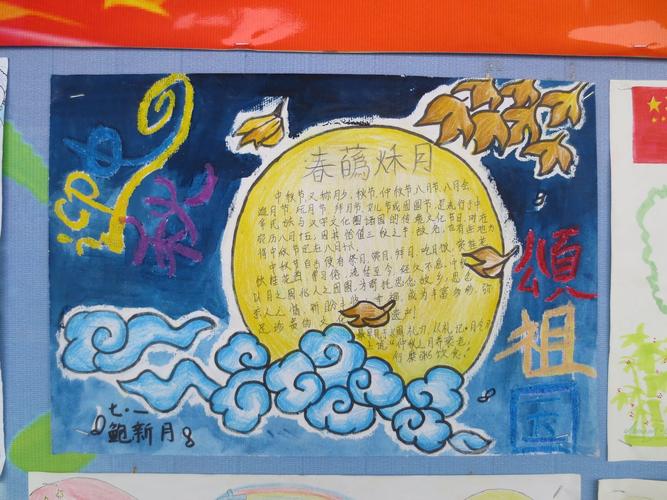 迎中秋
春鷮秌月
中秋节,又称月夕、秋节、仲秋节、八月节、八月会、
追月节、玩月节、拜月节、女儿节或团圆节,是流行于中
华民族与汉字文化圈诸国的传统文化节日,时在
农历八月十五;因其恰值三秋之半,故名,也有些地方
将中秋节定在八月十六。
中秋节自古便有祭月、赏月、拜月、吃月饼、赏桂花、
饮桂花酒等习俗,流传至今,经久不息。中秋
以月之圆兆人之团圆,为寄托思念故乡,思念
亲人之情,祈盼丰收、幸福,成为丰富多彩、弥
足珍贵的文化遗产!
礼记·月令
仲秋之月养衰老,
行糜粥饮食。
頌祖国
七.一
鲍新月